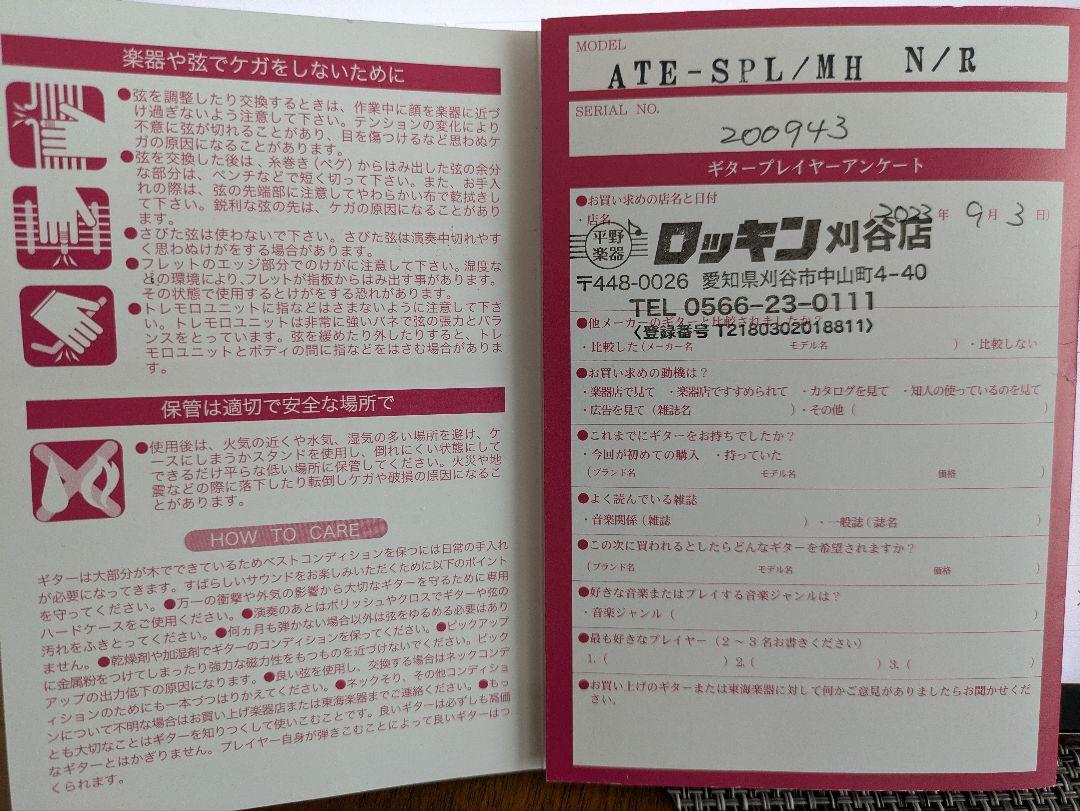 楽器や弦でケガをしないために
●弦を調整したり交換するときは、作業中に顔を楽器に近づ
け過ぎないよう注意して下さい。テンションの変化により
不意に弦が切れることがあり、目を傷つけるなど思わぬケ
ガの原因になることがあります。
●弦を交換した後は、糸巻き(ペグ)からはみ出した弦の余分
な部分は、ペンチなどで短く切って下さい。また、お手入
れの際は、弦の先端部に注意してやわらかい布で乾拭きし
て下さい。鋭利な弦の先は、ケガの原因になることがあり
ます。
●さびた弦は使わないで下さい。さびた弦は演奏中切れやす
く思わぬけがをする場合があります。
●フレットのエッジ部分でのけがに注意して下さい。湿度な
どの環境により、フレットが指板からはみ出す事があります。
その状態で使用するとけがをする恐れがあります。
●トレモロユニットに指などはさまないように注意して下さ
い。トレモロユニットは非常に強いバネで弦の張力とバラ
ンスをとっています。弦を緩めたり外したりすると、トレ
モロユニットとボディの間に指などをはさむ場合がありま
す。
保管は適切で安全な場所で
●使用後は、火気の近くや水気、湿気の多い場所を避け、ケ
ースにしまうかスタンドを使用し、倒れにくい状態にして
できるだけ平らな低い場所に保管してください。火災や地
震などの際に落下したり転倒しケガや破損の原因になるこ
とがあります。
HOW TO CARE
ギターは大部分が木でできているためベストコンディションを保つには日常の手入れ
が必要になってきます。すばらしいサウンドをお楽しみいただくために以下のポイント
を守ってください。●万一の衝撃や外気の影響から大切なギターを守るために専用
ハードケースをご使用ください。●演奏のあとはポリッシュやクロスでギターや弦の
汚れをふきとってください。●何ヵ月も弾かない場合以外は弦をゆるめる必要はあり
ません。●乾燥剤や加湿剤でギターのコンディションを保ってください。●ピックアップ
に金属粉をつけてしまったり強力な磁力性をもつものを近づけないでください。ピック
アップの出力低下の原因になります。●良い弦を使用し、交換する場合はネックコンデ
ィションのためにも一本づつはりかえてください。●ネックそり、その他コンディショ
ンについて不明な場合はお買い上げ楽器店または東海楽器までご連絡ください。●もっ
とも大切なことはギターを知りつくして使いこむことです。良いギターは必ずしも高価
なギターとはかぎりません。プレイヤー自身が弾きこむことによって良いギターはつ
くられます。
MODEL
ATE-SPL/MH N/R
SERIAL NO.
200943
ギタープレイヤーアンケート
●お買い求めの店名と日付
・店名
(2023年 9月 3日)
平野楽器 ロッキン刈谷店
〒448-0026 愛知県刈谷市中山町4-40
TEL 0566-23-0111
〈登録番号 T2180302018811〉
●他メーカーのギターと比較されましたか?
・比較した(メーカー名 モデル名 ) ・比較しない
●お買い求めの動機は?
・楽器店で見て ・楽器店ですすめられて ・カタログを見て ・知人の使っているのを見て
・広告を見て(雑誌名 ) ・その他( )
●これまでにギターをお持ちでしたか?
・今回が初めての購入 ・持っていた
(ブランド名 モデル名 価格 )
●よく読んでいる雑誌
・音楽関係(雑誌 ) ・一般誌(誌名 )
●この次に買われるとしたらどんなギターを希望されますか?
(ブランド名 モデル名 価格 )
●好きな音楽またはプレイする音楽ジャンルは?
・音楽ジャンル( )
●最も好きなプレイヤー(2〜3名お書きください)
1.( ) 2.( ) 3.( )
●お買い上げのギターまたは東海楽器に対して何かご意見がありましたらお聞かせくだ
さい。